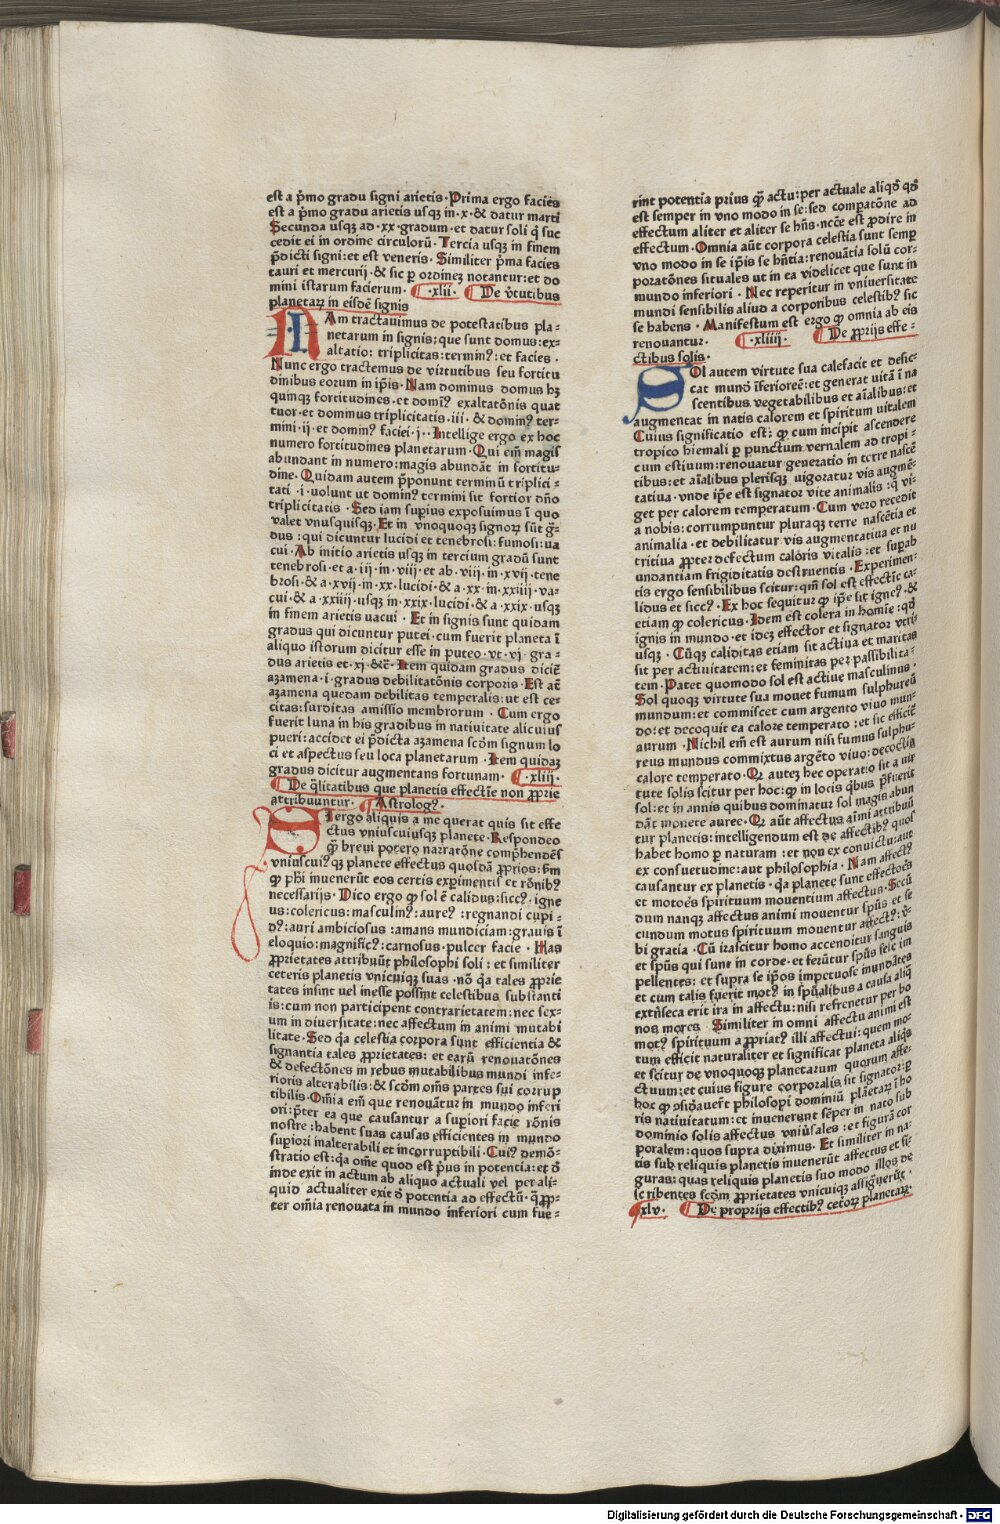 est a p̄mo gradu signi arietis·Prima ergo facies
est a p̄mo gradu arietis usqꝫ in·x·& datur marti
Secunda usqꝫ ad·xx·gradum·et datur soli q̄ suc
cedit ei in ordine circulorū·Tercia usqꝫ in finem
p̄dicti signi:et est veneris·Similiter p̄ma facies
tauri et mercurij·& sic ꝑ ordineꝫ notantur:et do
mini istarum facierum· ·xlii· De v̄tutibus
planetaꝝ in eisdē signis
NAm tractauimus de potestatibus pla⸗
netarum in signis:que sunt domus:ex⸗
altatio:triplicitas:terminꝰ:et facies·
Nunc ergo tractemus de virtutibus seu fortitu
dinibus eorum in ip̄is·Nam dominus domus hꝫ
quinqꝫ fortitudines·et domīꝰ exaltatōnis quat
tuor·et dominus triplicitatis·iii·& dominꝰ ter⸗
mini·ij·et dominꝰ faciei·j··Intellige ergo ex hoc
numero fortitudines planetarum·Qui em̄ magis
abundant in numero:magis abundāt in fortitu⸗
dine·Quidam autem p̄ponunt terminū triplici⸗
tati·i·uolunt ut dominꝰ termini sit fortior dño
triplicitatis·Sed iam supius exposuimus ī quo
valet vnusquisqꝫ·Et in vnoquoqꝫ signoꝝ sūt g̊⸗
dus:qui dicuntur lucidi et tenebrosi:fumosi:ua
cui·Ab initio arietis usqꝫ in tercium gradū sunt
tenebrosi·et a·iij·in·viij·et ab·viij·in·xvij·tene
brosi·& a·xvij·in·xx·lucidi·& a·xx·in·xxiiij·va⸗
cui·& a·xxiiij·usqꝫ in·xxix·lucidi·& a·xxix·usqꝫ
in finem arietis uacui·Et in signis sunt quidam
gradus qui dicuntur putei·cum fuerit planeta ī
aliquo istorum dicitur esse in puteo·vt·vj·gra⸗
dus arietis et·xj·&c̄·Item quidam gradus dicūt̄
aꝫamena·i·gradus debilitatōnis corporis·Est aūt̄
aꝫamena quedam debilitas temperalis:ut est ce⸗
citas:surditas amissio membrorum·Cum ergo
fuerit luna in his gradibus in natiuitate alicuius
pueri:accidet ei p̄dicta aꝫamena scd̄m signum lo
ci et aspectus seu loca planetarum·Item quidaꝫ
gradus dicitur augmentans fortunam· ·xliij·
De q̄litatibus que planetis effectiue non ꝓprie
attribuuntur· Astrologꝰ·
SI ergo aliquis a me querat quis sit effe
ctus vniuscuiusqꝫ planete·Respondeo
ꝙ breui potero narratōne comp̄hendēs
vniuscuiꝰqꝫ planete effectus quosdā ꝓprios:s̄m
ꝙ phī inuenerūt eos certis expimentis et rōnibꝰ
necessarijs·Dico ergo ꝙ sol ē calidus:siccꝰ·igne
us:colericus:masculinꝰ:aureꝰ:regnandi cupi⸗
dꝰ:auri ambiciosus:amans mundiciam:grauis ī
eloquio:magnificꝰ:carnosus·pulcer facie·Has
ꝓprietates attribuūt philosophi soli:et similiter
ceteris planetis vnicuiqꝫ suas·nō q̄a tales ꝓprie
tates insint uel inesse possint celestibus substanti
is:cum non participent contrarietatem:nec sex⸗
um in diuersitate:nec affectum in animi mutabi
litate·Sed q̄a celestia corpora sunt efficientia &
signantia tales ꝓprietates:et earū renouatōnes
& defectōnes in rebus mutabilibus mundi infe⸗
rioris alterabilis:& scd̄m om̄s partes sui corrup
tibilis·Om̄ia em̄ que renouātur in mundo inferi
ori:p̄ter ea que causantur a supiori facie rōnis
nostre:habent suas causas efficientes in mundo
supiori inalterabili et incorruptibili·Cuiꝰ demō⸗
stratio est:q̄a om̄e quod est p̄us in potentia:et d̄
inde exit in actum ab aliquo actuali vel per ali⸗
quid actualiter exit d̄ potentia ad effectū·q̄ ꝓp⸗
ter om̄ia renouata in mundo inferiori cum fue⸗
rint potentia prius q̄ƺ actu:per actuale aliqd̄ qd̄
est semper in vno modo in se:sed compatōne ad
effectum aliter et aliter se hn̄s·nc̄c̄e est ꝓdire in
effectum·Omnia aūt corpora celestia sunt semꝑ
vno modo in se ip̄is se hn̄tia:renouātia solū cor⸗
poratōnes situales ut in ea videlicet que sunt in
mundo inferiori·Nec reperitur in vniuersitate
mundi sensibilis aliud a corporibus celestibꝰ sic
se habens·Manifestum est ergo ꝙ omnia ab eis
renouantur· ·xliiij· De ꝓprijs effe⸗
ctibus solis·
SOl autem virtute sua calefacit et desic⸗
cat mundū īferiorē:et generat uitā ī na
scentibus vegetabilibus et aīalibus:et
augmentat in natis calorem et spiritum uitalem
Cuius significatio est:ꝙ cum incipit ascendere
tropico hiemali ꝑ punctum vernalem ad tropi⸗
cum estiuum:renouatur generatio in terre nascē
tibus:et aīalibus plerisqꝫ uigoratur vis augmē⸗
tatiua·vnde ip̄e est signator vite animalis:q̄ vi⸗
get per calorem temperatum·Cum vero recedit
a nobis:corrumpuntur pluraqꝫ terre nascētia et
animalia·et debilitatur vis augmentatiua et nu
tritiua ꝓpter defectum caloris vitalis:et supab
undantiam frigiditatis destruentis·Experimen⸗
tis ergo sensibilibus scitur:qm̄ sol est effectiē ca⸗
lidus et siccꝰ·Ex hoc sequitur ꝙ ip̄e sit igneꝰ·&
etiam ꝙ colericus·Idem est colera in homīe:qd̄
ignis in mundo·et ideꝫ effector et signator vtri
usqꝫ·Cūqꝫ caliditas etiam sit actiua et maritas
sit per actiuitatem:et feminitas per passibilita⸗
tem·Patet quomodo sol est actiue masculinus·
Sol quoqꝫ virtute sua mouet fumum sulphureū
mundum:et commiscet cum argento viuo mun⸗
do:et decoquit ea calore temperato:et sic efficit̄
aurum·Nichil em̄ est aurum nisi fumus sulphu⸗
reus mundus commixtus argēto viuo:decoctis
calore temperato·Q auteꝫ hec operatio sit a vir
tute solis scitur per hoc:ꝙ in locis q̄bus p̄fuerit
sol:et in annis quibus dominatur sol magis abun
dāt monete auree·Q aūt affectus aīmi attribuū
tur planetis:intelligendum est de affectibꝰ quos
habet homo ꝑ naturam:et non ex conuictu:aut
ex consuetudine:aut philosophia·Nam affectꝰ
causantur ex planetis·q̄a planete sunt effectōes
et motoēs spirituum mouentium affectus·Secū
dum nanqꝫ affectus animi mouentur spūs et se
cundum motus spirituum mouentur affectꝰ:v̄⸗
bi gratia·Cū irascitur homo accenditur sanguis
et spūs qui sunt in corde·et ferūtur spūs felc im
pellentes:et supra se ip̄os impetuose inundātes
et cum talis fuerit motꝰ in spūalibus a causa aliq̄
extrīseca erit ira in affectu:nisi refrenetur per bo
nos mores·Similiter in omni affectu animi est
motꝰ spirituum aꝓpriatꝰ illi affectui:quem mo⸗
tum efficit naturaliter et significat planeta aliqs
et scitur de vnoquoqꝫ planetarum quorum affe⸗
ctuum:et cuius figure corporalis sit signator:ꝑ
hoc ꝙ ꝯsid̄auer̄t philosopi dominiū planetaꝝ ī ho
ris natiuitatum:et inuenerunt sēper in nato sub
dominio solis affectus vniūsales:et figurā cor
poralem:quos supra diximus·Et similiter in na⸗
tis sub reliquis planetis inuenerūt affectus et fi⸗
guras:quas reliquis planetis suo modo illos de
scribentes scd̄m ꝓprietates vnicuiqꝫ assignerūt·
·xlv· De proprijs effectibꝰ cetoꝝ planetaꝝ·
Digitalisierung gefördert durch die Deutsche Forschungsgemeinschaft - DFG